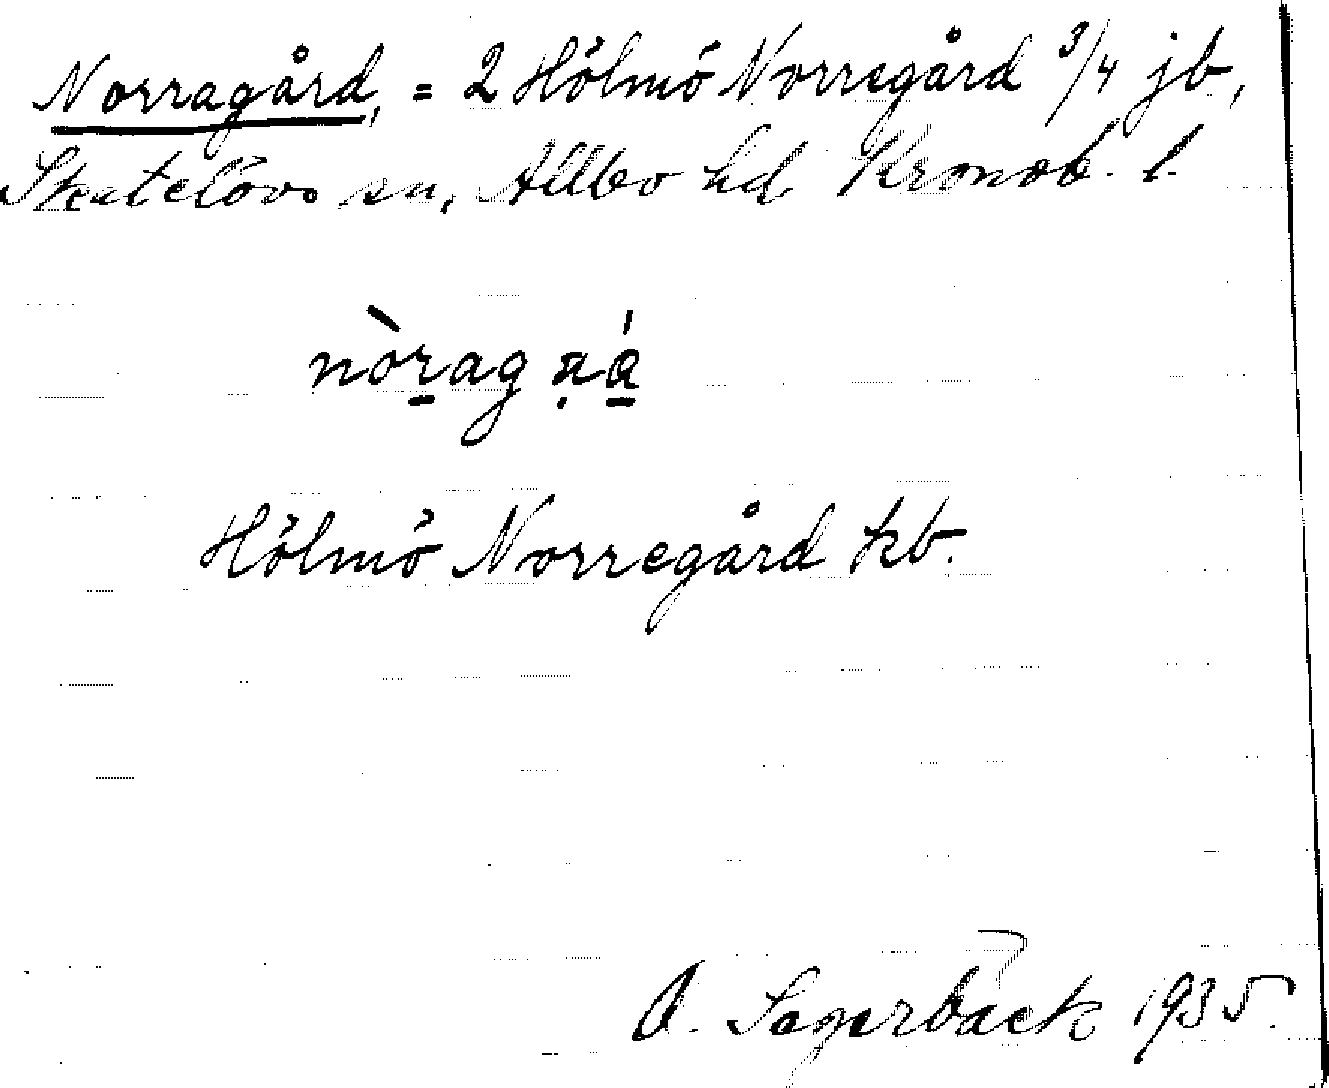 Norragård, = 2 Hölmö Norregård 3/4 jb,
Skatelövs sn, Allbo hd. Kronob. l.
nòrag
Hölmö Norregård kb.
O. Segerbäck 1935.